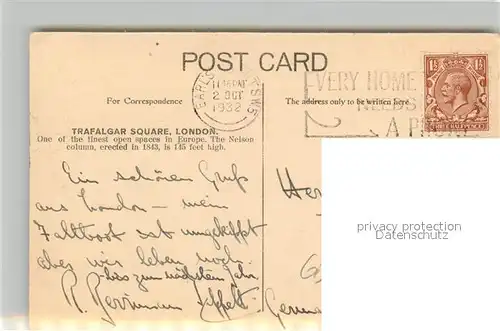 POST CARD
EARLS
11 45 AM
2 OCT
1932
S.W.5
EVERY HOME
NEEDS
A PHONE
For Correspondence
The address only to be written here.
TRAFALGAR SQUARE, LONDON.
One of the finest open spaces in Europe. The Nelson
column, erected in 1843, is 145 feet high.
Ein schönen Gruß
aus London – mein
Faltboot ist umgekippt
aber wir leben noch.
bis zum nächsten Jahr
R.
Her
German
privacy protection
Datenschutz